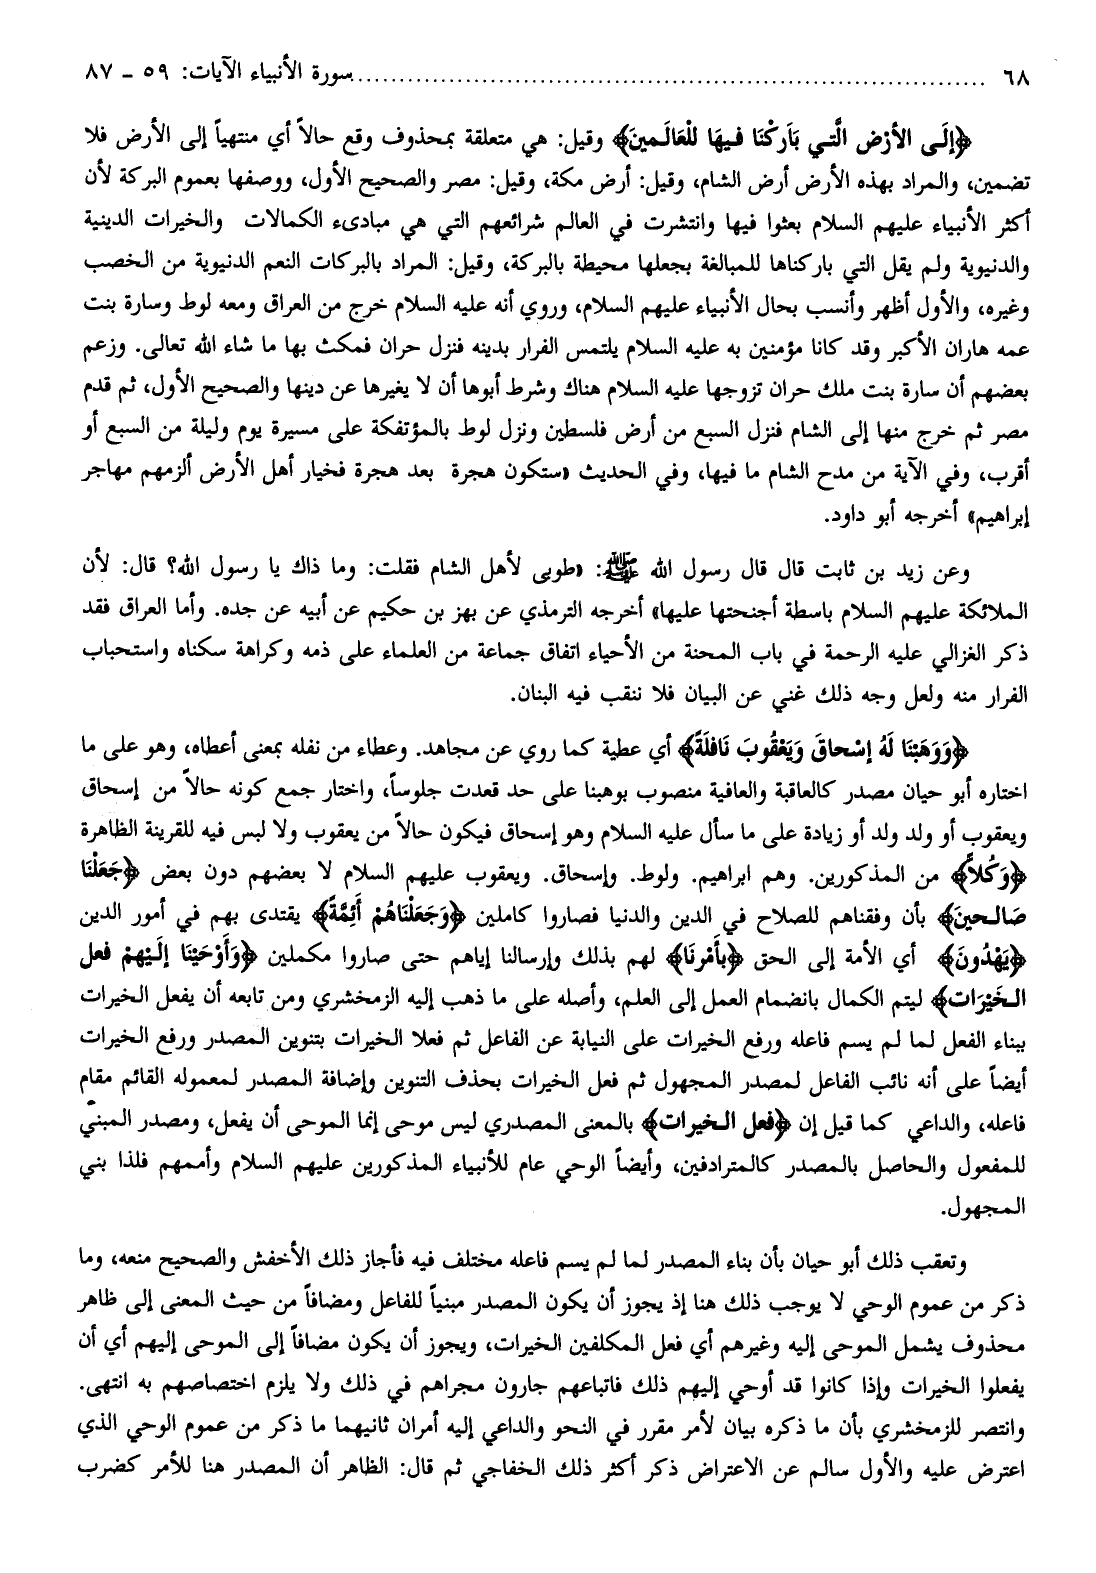 ٦٨ ........................................ سورة الأنبياء الآيات: ٥٩ – ٨٧
﴿إلَى الأرْضِ الَّتي بَارَكْنَا فيهَا للْعَالَمينَ﴾ وقيل: هي متعلقة بمحذوف وقع حالاً أي منتهياً إلى الأرض فلا
تضمين، والمراد بهذه الأرض أرض الشام، وقيل: أرض مكة، وقيل: مصر والصحيح الأول، ووصفها بعموم البركة لأن
أكثر الأنبياء عليهم السلام بعثوا فيها وانتشرت في العالم شرائعهم التي هي مبادىء الكمالات والخيرات الدينية
والدنيوية ولم يقل التي باركناها للمبالغة بجعلها محيطة بالبركة، وقيل: المراد بالبركات النعم الدنيوية من الخصب
وغيره، والأول أظهر وأنسب بحال الأنبياء عليهم السلام، وروي أنه عليه السلام خرج من العراق ومعه لوط وسارة بنت
عمه هاران الأكبر وقد كانا مؤمنين به عليه السلام يلتمس الفرار بدينه فنزل حران فمكث بها ما شاء الله تعالى. وزعم
بعضهم أن سارة بنت ملك حران تزوجها عليه السلام هناك وشرط أبوها أن لا يغيرها عن دينها والصحيح الأول، ثم قدم
مصر ثم خرج منها إلى الشام فنزل السبع من أرض فلسطين ونزل لوط بالمؤتفكة على مسيرة يوم وليلة من السبع أو
أقرب، وفي الآية من مدح الشام ما فيها، وفي الحديث «ستكون هجرة بعد هجرة فخيار أهل الأرض ألزمهم مهاجر
إبراهيم» أخرجه أبو داود.
وعن زيد بن ثابت قال قال رسول الله ﷺ: «طوبى لأهل الشام فقلت: وما ذاك يا رسول الله؟ قال: لأن
الملائكة عليهم السلام باسطة أجنحتها عليها» أخرجه الترمذي عن بهز بن حكيم عن أبيه عن جده. وأما العراق فقد
ذكر الغزالي عليه الرحمة في باب المحنة من الأحياء اتفاق جماعة من العلماء على ذمه وكراهة سكناه واستحباب
الفرار منه ولعل وجه ذلك غني عن البيان فلا ننقب فيه البنان.
﴿وَوَهَبْنَا لَهُ إسْحاقَ وَيَعْقُوبَ نَافلَةً﴾ أي عطية كما روي عن مجاهد. وعطاء من نفله بمعنى أعطاه، وهو على ما
اختاره أبو حيان مصدر كالعاقبة والعافية منصوب بوهبنا على حد قعدت جلوساً، واختار جمع كونه حالاً من إسحاق
ويعقوب أو ولد ولد أو زيادة على ما سأل عليه السلام وهو إسحاق فيكون حالاً من يعقوب ولا لبس فيه للقرينة الظاهرة
﴿وَكُلاًّ﴾ من المذكورين. وهم ابراهيم. ولوط. وإسحاق. ويعقوب عليهم السلام لا بعضهم دون بعض ﴿جَعَلْنَا
صَالحينَ﴾ بأن وفقناهم للصلاح في الدين والدنيا فصاروا كاملين ﴿وَجَعَلْنَاهُمْ أَئمَّةً﴾ يقتدى بهم في أمور الدين
﴿يَهْدُونَ﴾ أي الأمة إلى الحق ﴿بأَمْرنَا﴾ لهم بذلك وإرسالنا إياهم حتى صاروا مكملين ﴿وَأَوْحَيْنَا إلَيْهمْ فعل
الخَيْرَات﴾ ليتم الكمال بانضمام العمل إلى العلم، وأصله على ما ذهب إليه الزمخشري ومن تابعه أن يفعل الخيرات
ببناء الفعل لما لم يسم فاعله ورفع الخيرات على النيابة عن الفاعل ثم فعلا الخيرات بتنوين المصدر ورفع الخيرات
أيضاً على أنه نائب الفاعل لمصدر المجهول ثم فعل الخيرات بحذف التنوين وإضافة المصدر لمعموله القائم مقام
فاعله، والداعي كما قيل إن ﴿فعل الخيرات﴾ بالمعنى المصدري ليس موحى إنما الموحى أن يفعل، ومصدر المبني
للمفعول والحاصل بالمصدر كالمترادفين، وأيضاً الوحي عام للأنبياء المذكورين عليهم السلام وأممهم فلذا بني
المجهول.
وتعقب ذلك أبو حيان بأن بناء المصدر لما لم يسم فاعله مختلف فيه فأجاز ذلك الأخفش والصحيح منعه، وما
ذكر من عموم الوحي لا يوجب ذلك هنا إذ يجوز أن يكون المصدر مبنياً للفاعل ومضافاً من حيث المعنى إلى ظاهر
محذوف يشمل الموحى إليه وغيرهم أي فعل المكلفين الخيرات، ويجوز أن يكون مضافاً إلى الموحى إليهم أي أن
يفعلوا الخيرات وإذا كانوا قد أوحي إليهم ذلك فاتباعهم جارون مجراهم في ذلك ولا يلزم اختصاصهم به انتهى.
وانتصر للزمخشري بأن ما ذكره بيان لأمر مقرر في النحو والداعي إليه أمران ثانيهما ما ذكر من عموم الوحي الذي
اعترض عليه والأول سالم عن الاعتراض ذكر أكثر ذلك الخفاجي ثم قال: الظاهر أن المصدر هنا للأمر كضرب